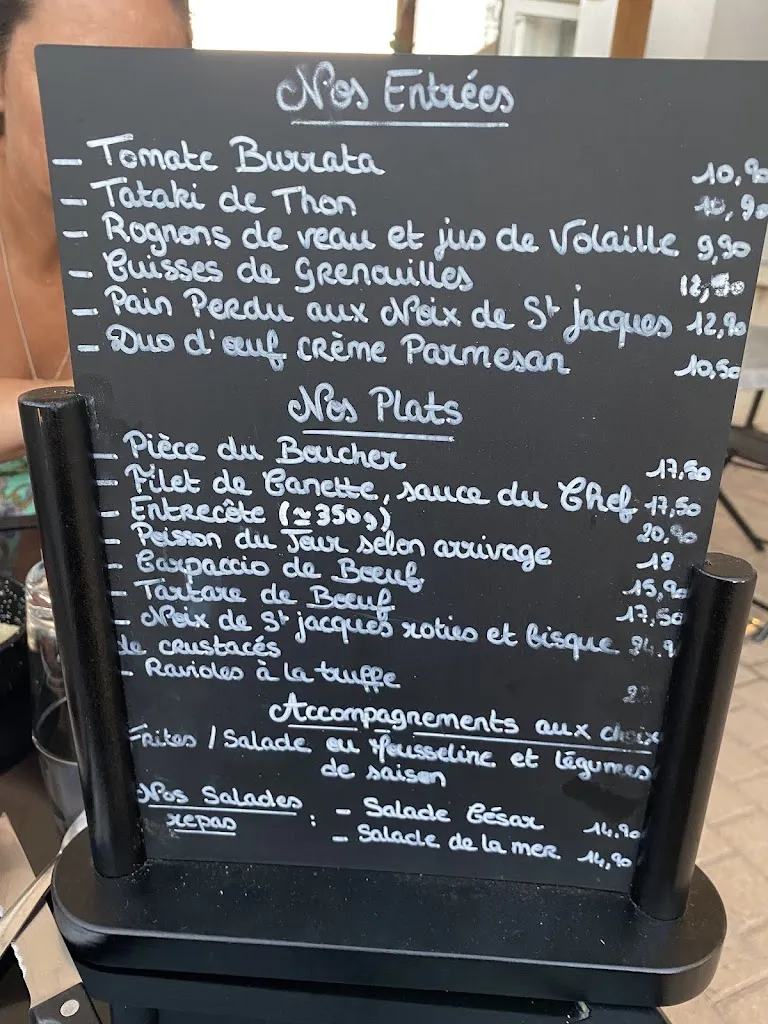 Nos Entrées
- Tomate Burrata 10,90
- Tataki de Thon 10,90
- Rognons de veau et jus de Volaille 9,90
- Cuisses de Grenouilles
- Pain Perdu aux Noix de St jacques 12,90
- Duo d'œuf crème Parmesan 10,50
Nos Plats
- Pièce du Boucher 17,50
- Filet de Canette, sauce du Chef 17,50
- Entrecôte (≃350g) 20,90
- Poisson du Jour selon arrivage 18
- Carpaccio de Bœuf 15,90
- Tartare de Bœuf 17,50
- Noix de St jacques roties et bisque
de crustacés
- Ravioles à la truffe
Accompagnements aux choix
Frites / Salade ou Mousseline et légumes
de saison
Nos Salades repas : - Salade César 14,90
- Salade de la mer 14,90